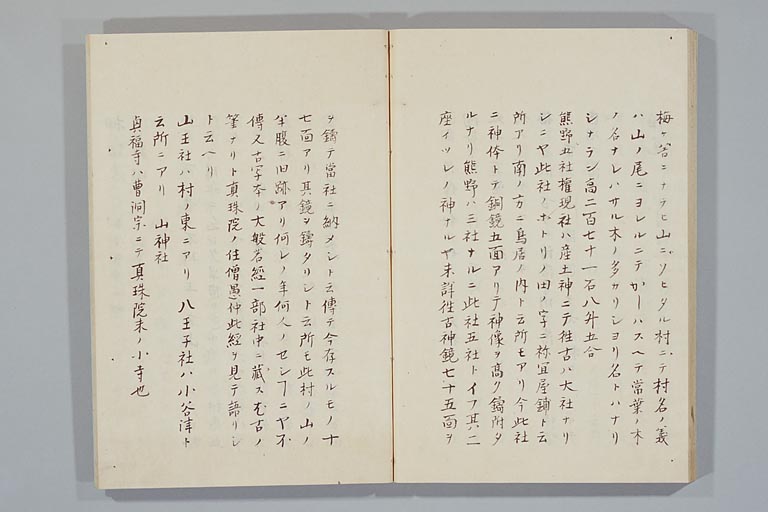 梅ヶ谷ニナラヒ山ニソヒタル村ニテ村名ノ義
ハ山ノ尾ニヨレルニテかしハスヘテ常葉ノ木
ノ名ナレハサル木ノ多カリシヨリ名トハナリ
シナラン高二百七十一石八升五合
熊野五社権現社ハ産土神ニテ徃古ハ大社ナリ
シニヤ此社ノホトリノ田ノ字ニ祢宜屋鋪ト云
所アリ南ノ方ニ鳥居ノ内ト云所モアリ今此社
ニ神体トテ銅鏡五面アリテ神像ヲ高ク鋳附タ
ルナリ熊野ハ三社ナルニ此社五社トイフ其二
座イツレノ神ナルヤ未詳徃古神鏡七十五面ヲ
ヲ鋳テ當社ニ納メシト云傳テ今存スルモノ十
七面アリ其鏡ヲ鋳タリシト云所モ此村ノ山ノ
半腹ニ旧跡アリ何レノ年何人ノセシヿニヤ不
傳又古写本ノ大般若經一部社中ニ藏ス尤古ノ
筆ナリト真珠院ノ住僧愚仲此經ヲ見テ語リシ
ト云ヘリ
山王社ハ村ノ東ニアリ 八王子社ハ小谷津ト
云所ニアリ 山神社
貞福寺ハ曹洞宗ニテ真珠院末ノ小寺也